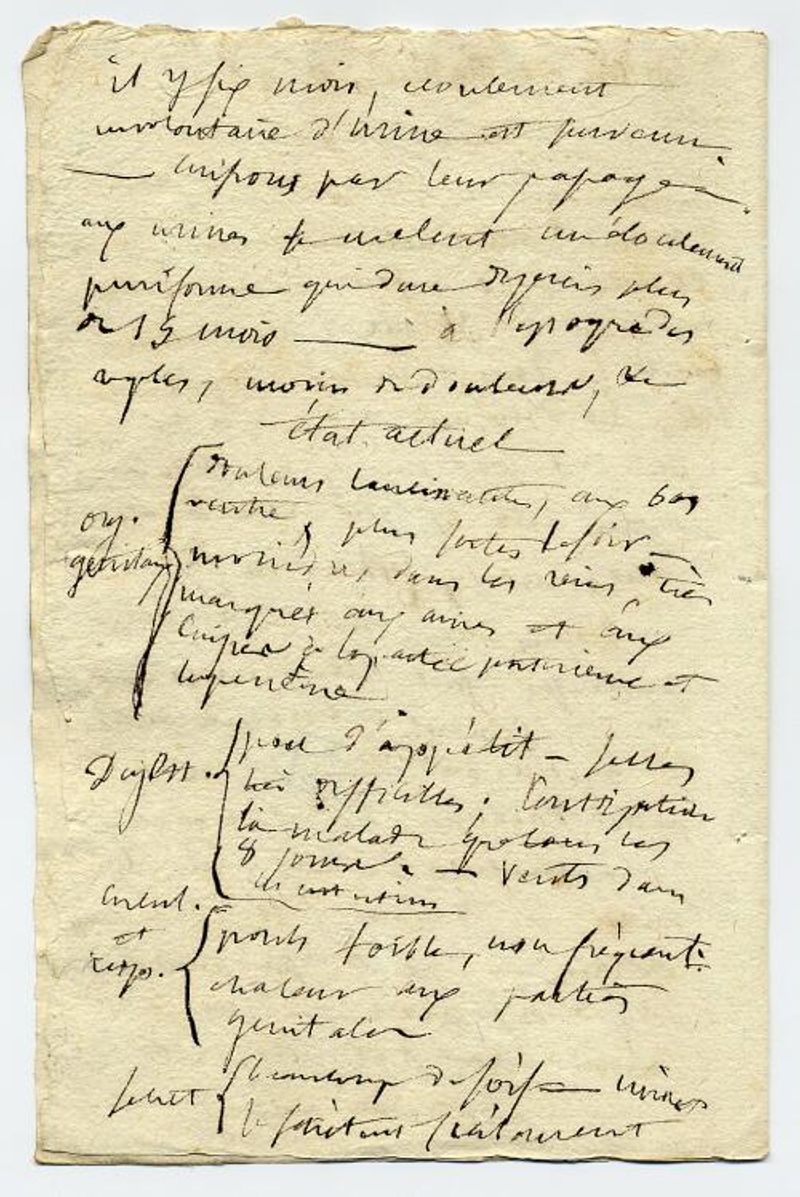 il y six mois, ecoulement
involontaire d'urine est survenu
— cuissons par leur passage —
aux urines se melent un écoulement
puriforme qui dure depuis plus
de 15 mois — à l'epoque des
regles, moins de douleurs, &c
état actuel
org.
genitaux
douleurs lancinantes, aux bas
ventre, plus fortes le soir —
moindres dans les reins, très
marqués aux aines et aux
cuisses à la partie posterieure et
superieure
Digest.
peu d'appétit — selles
très difficiles. Constipation
la malade que tous les
8 jours. — vents dans
les intestins
circul.
et
resp.
pouls foible, non fréquent.
chaleur aux parties
genitales
secret
beaucoup de soif — urines